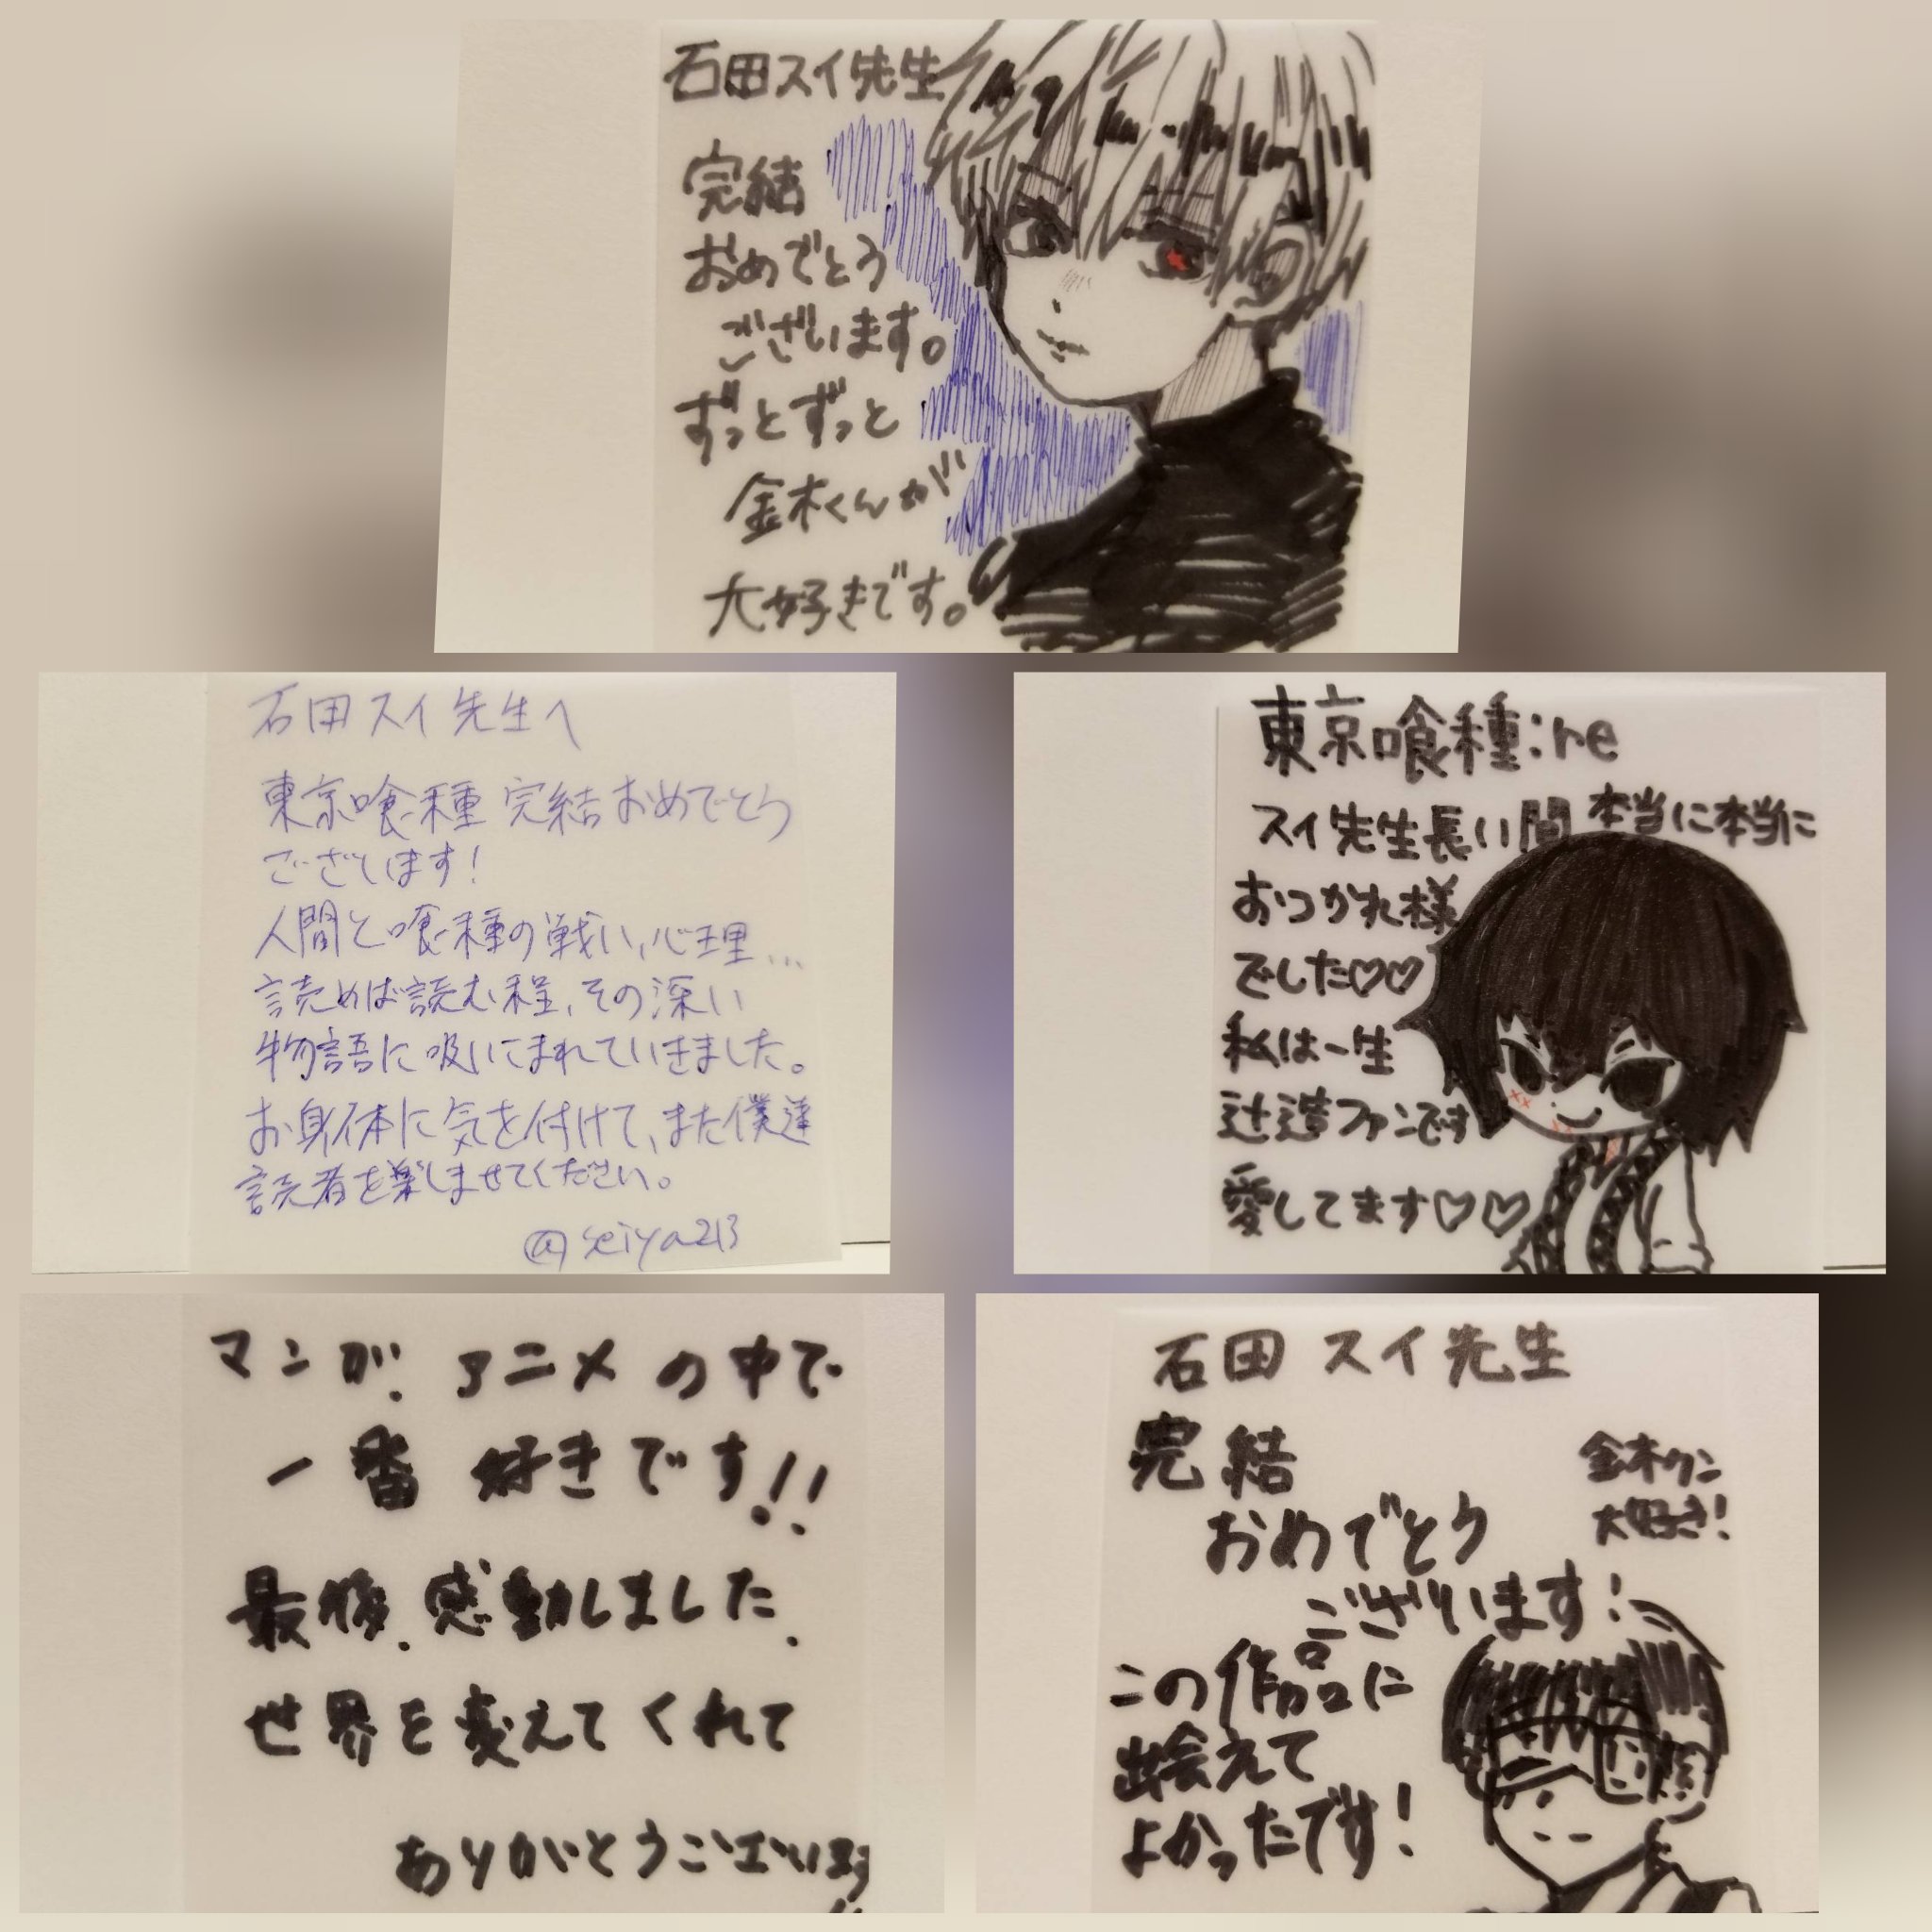 石田スイ先生
完結
おめでとう
ございます。
ずっとずっと
金木くんが
大好きです。
石田スイ先生へ
東京喰種 完結おめでとう
ございます!
人間と喰種の戦い、心理...
読めば読む程、その深い
物語に吸いこまれていきました。
お身体に気を付けて、また僕達
読者を楽しませてください。
@seiya213
東京喰種:re
スイ先生長い間 本当に本当に
おつかれ様
でした♡♡
私は一生
辻造ファンです
愛してます♡♡
マンガ、アニメの中で
一番 好きです!!
最後、感動しました、
世界を変えてくれて
ありがとうございます
石田 スイ先生
完結
おめでとう
ございます!
金木クン
大好き!
この作品に
出会えて
よかったです!